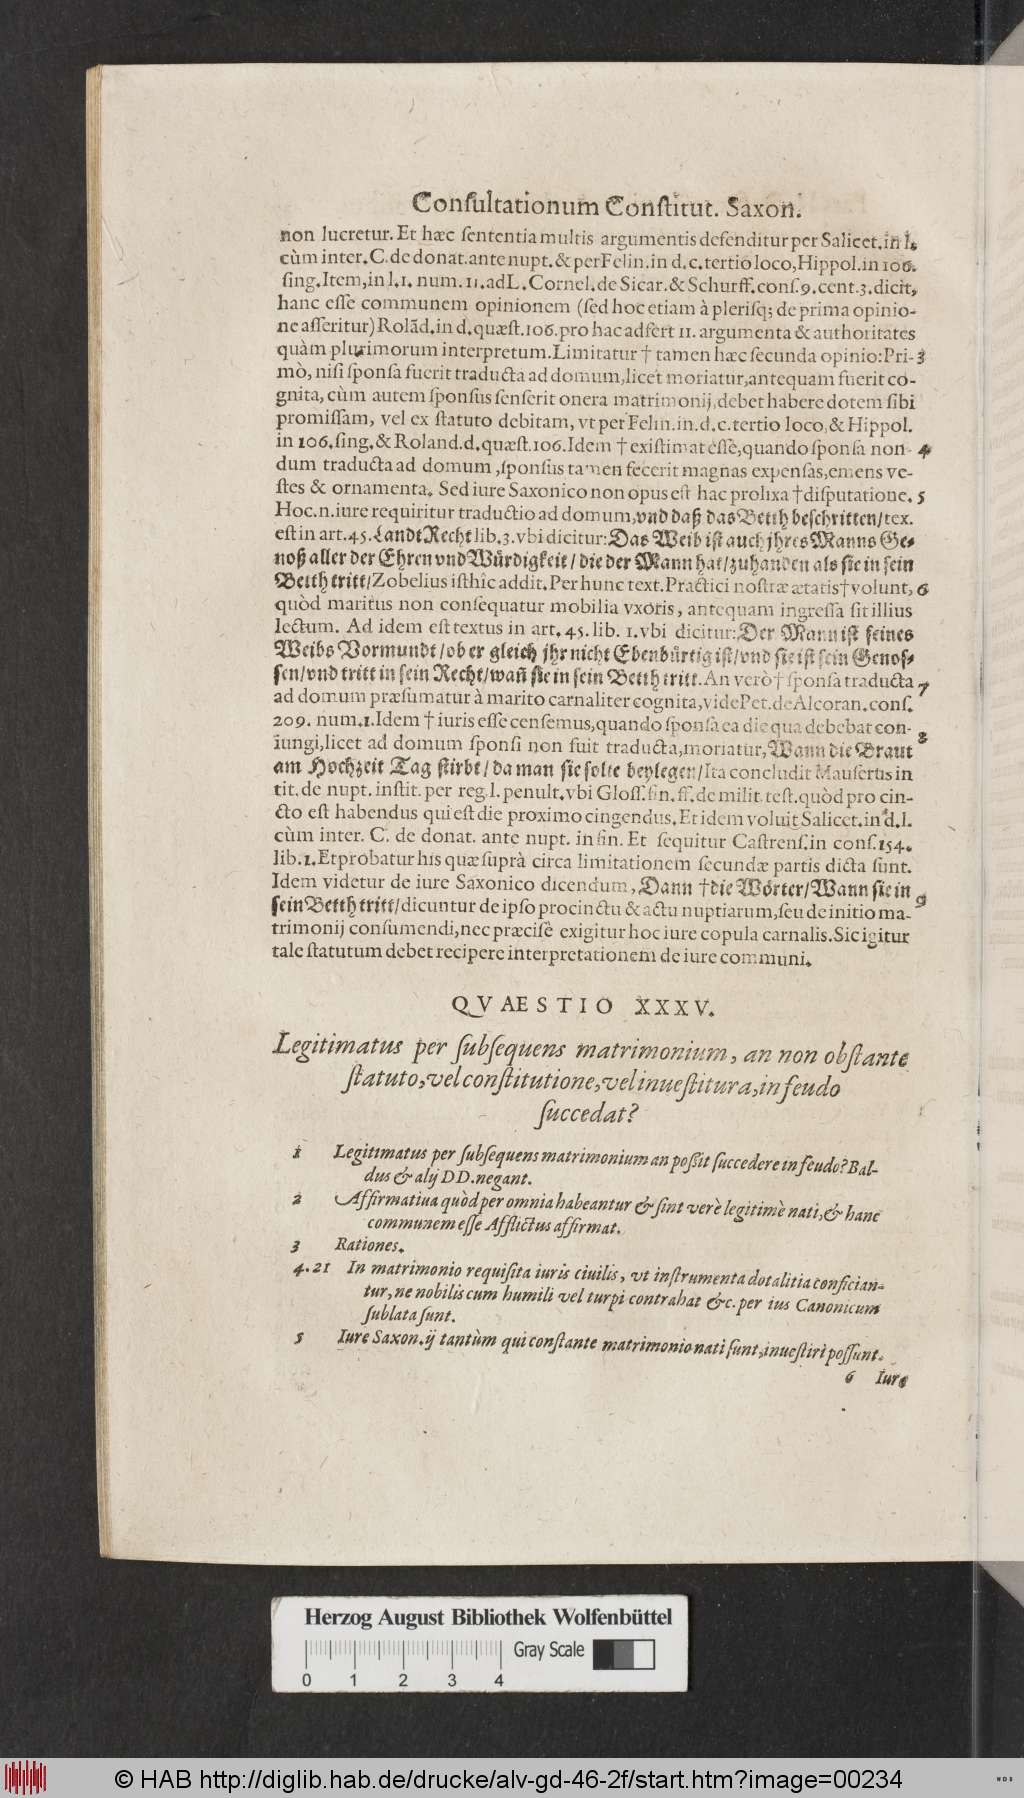 Conſultationum Conſtitut. Saxon.
non lucretur. Et hæc ſententia multis argumentis defenditur per Salicet. in l.
cùm inter. C. de donat. ante nupt. & per Felin. in d. c. tertio loco, Hippol. in 106.
ſing. Item, in l. 1. num. 11. ad L. Cornel. de Sicar. & Schurff. conſ. 9. cent. 3. dicit,
hanc eſſe communem opinionem (ſed hoc etiam à pleriſq; de prima opinio-
ne aſſeritur) Rolãd. in d. quæſt. 106. pro hac adfert 11. argumenta & authoritates
quàm plurimorum interpretum. Limitatur † tamen hæc ſecunda opinio: Pri- 3
mò, niſi ſponſa fuerit traducta ad domum, licet moriatur, antequam fuerit co-
gnita, cùm autem ſponſus ſenſerit onera matrimonij, debet habere dotem ſibi
promiſſam, vel ex ſtatuto debitam, vt per Felin. in. d. c. tertio loco, & Hippol.
in 106. ſing. & Roland. d. quæſt. 106. Idem † exiſtimat eſſe, quando ſponſa non- 4
dum traducta ad domum, ſponſus tamen fecerit magnas expenſas, emens ve-
ſtes & ornamenta. Sed iure Saxonico non opus eſt hac prolixa † diſputatione. 5
Hoc. n. iure requiritur traductio ad domum, vnd daß das Betth beſchritten/ tex.
eſt in art. 45. Landt Recht lib. 3. vbi dicitur: Das Weib iſt auch jhres Manns Ge-
noß aller der Ehren vnd Würdigkeit/ die der Mann hat/ zuhanden als ſie in ſein
Betth tritt/ Zobelius iſthîc addit. Per hunc text. Practici noſtræ ætatis † volunt, 6
quòd maritus non conſequatur mobilia vxoris, antequam ingreſſa ſit illius
lectum. Ad idem eſt textus in art. 45. lib. 1. vbi dicitur: Der Mann iſt ſeines
Weibs Vormundt/ ob er gleich jhr nicht Ebenbürtig iſt/ vnd ſie iſt ſein Genoſ-
ſen/ vnd tritt in ſein Recht/ wañ ſie in ſein Betth tritt. An verò † ſponſa traducta 7
ad domum præſumatur à marito carnaliter cognita, vide Pet. de Alcoran. conſ.
209. num. 1. Idem † iuris eſſe cenſemus, quando ſponſa ea die qua debebat con- 8
iungi, licet ad domum ſponſi non fuit traducta, moriatur, Wann die Braut
am Hochzeit Tag ſtirbt/ da man ſie ſolte beylegen/ Ita concludit Mauſerus in
tit. de nupt. inſtit. per reg. l. penult. vbi Gloſſ. fin. ff. de milit. teſt. quòd pro cin-
cto eſt habendus qui eſt die proximo cingendus. Et idem voluit Salicet. in d. l.
cùm inter. C. de donat. ante nupt. in fin. Et ſequitur Caſtrenſ. in conſ. 154.
lib. 1. Et probatur his quæ ſuprà circa limitationem ſecundæ partis dicta ſunt.
Idem videtur de iure Saxonico dicendum, Dann † die Wörter/ Wann ſie in 9
ſein Betth tritt/ dicuntur de ipſo procinctu & actu nuptiarum, ſeu de initio ma-
trimonij conſumendi, nec præcisè exigitur hoc iure copula carnalis. Sic igitur
tale ſtatutum debet recipere interpretationem de iure communi.
QVAESTIO XXXV.
Legitimatus per ſubſequens matrimonium, an non obſtante
ſtatuto, vel conſtitutione, vel inueſtitura, in feudo
ſuccedat?
1 Legitimatus per ſubſequens matrimonium an poſſit ſuccedere in feudo? Bal-
dus & alij DD. negant.
2 Affirmatiua quòd per omnia habeantur & ſint verè legitimè nati, & hanc
communem eſſe Afflictus affirmat.
3 Rationes.
4. 21 In matrimonio requiſita iuris ciuilis, vt inſtrumenta dotalitia confician-
tur, ne nobilis cum humili vel turpi contrahat &c. per ius Canonicum
ſublata ſunt.
5 Iure Saxon. ij tantùm qui conſtante matrimonio nati ſunt, inueſtiri poſſunt.
6 Iure
Herzog August Bibliothek Wolfenbüttel
Gray Scale
0 1 2 3 4
© HAB http://diglib.hab.de/drucke/alv-gd-46-2f/start.htm?image=00234